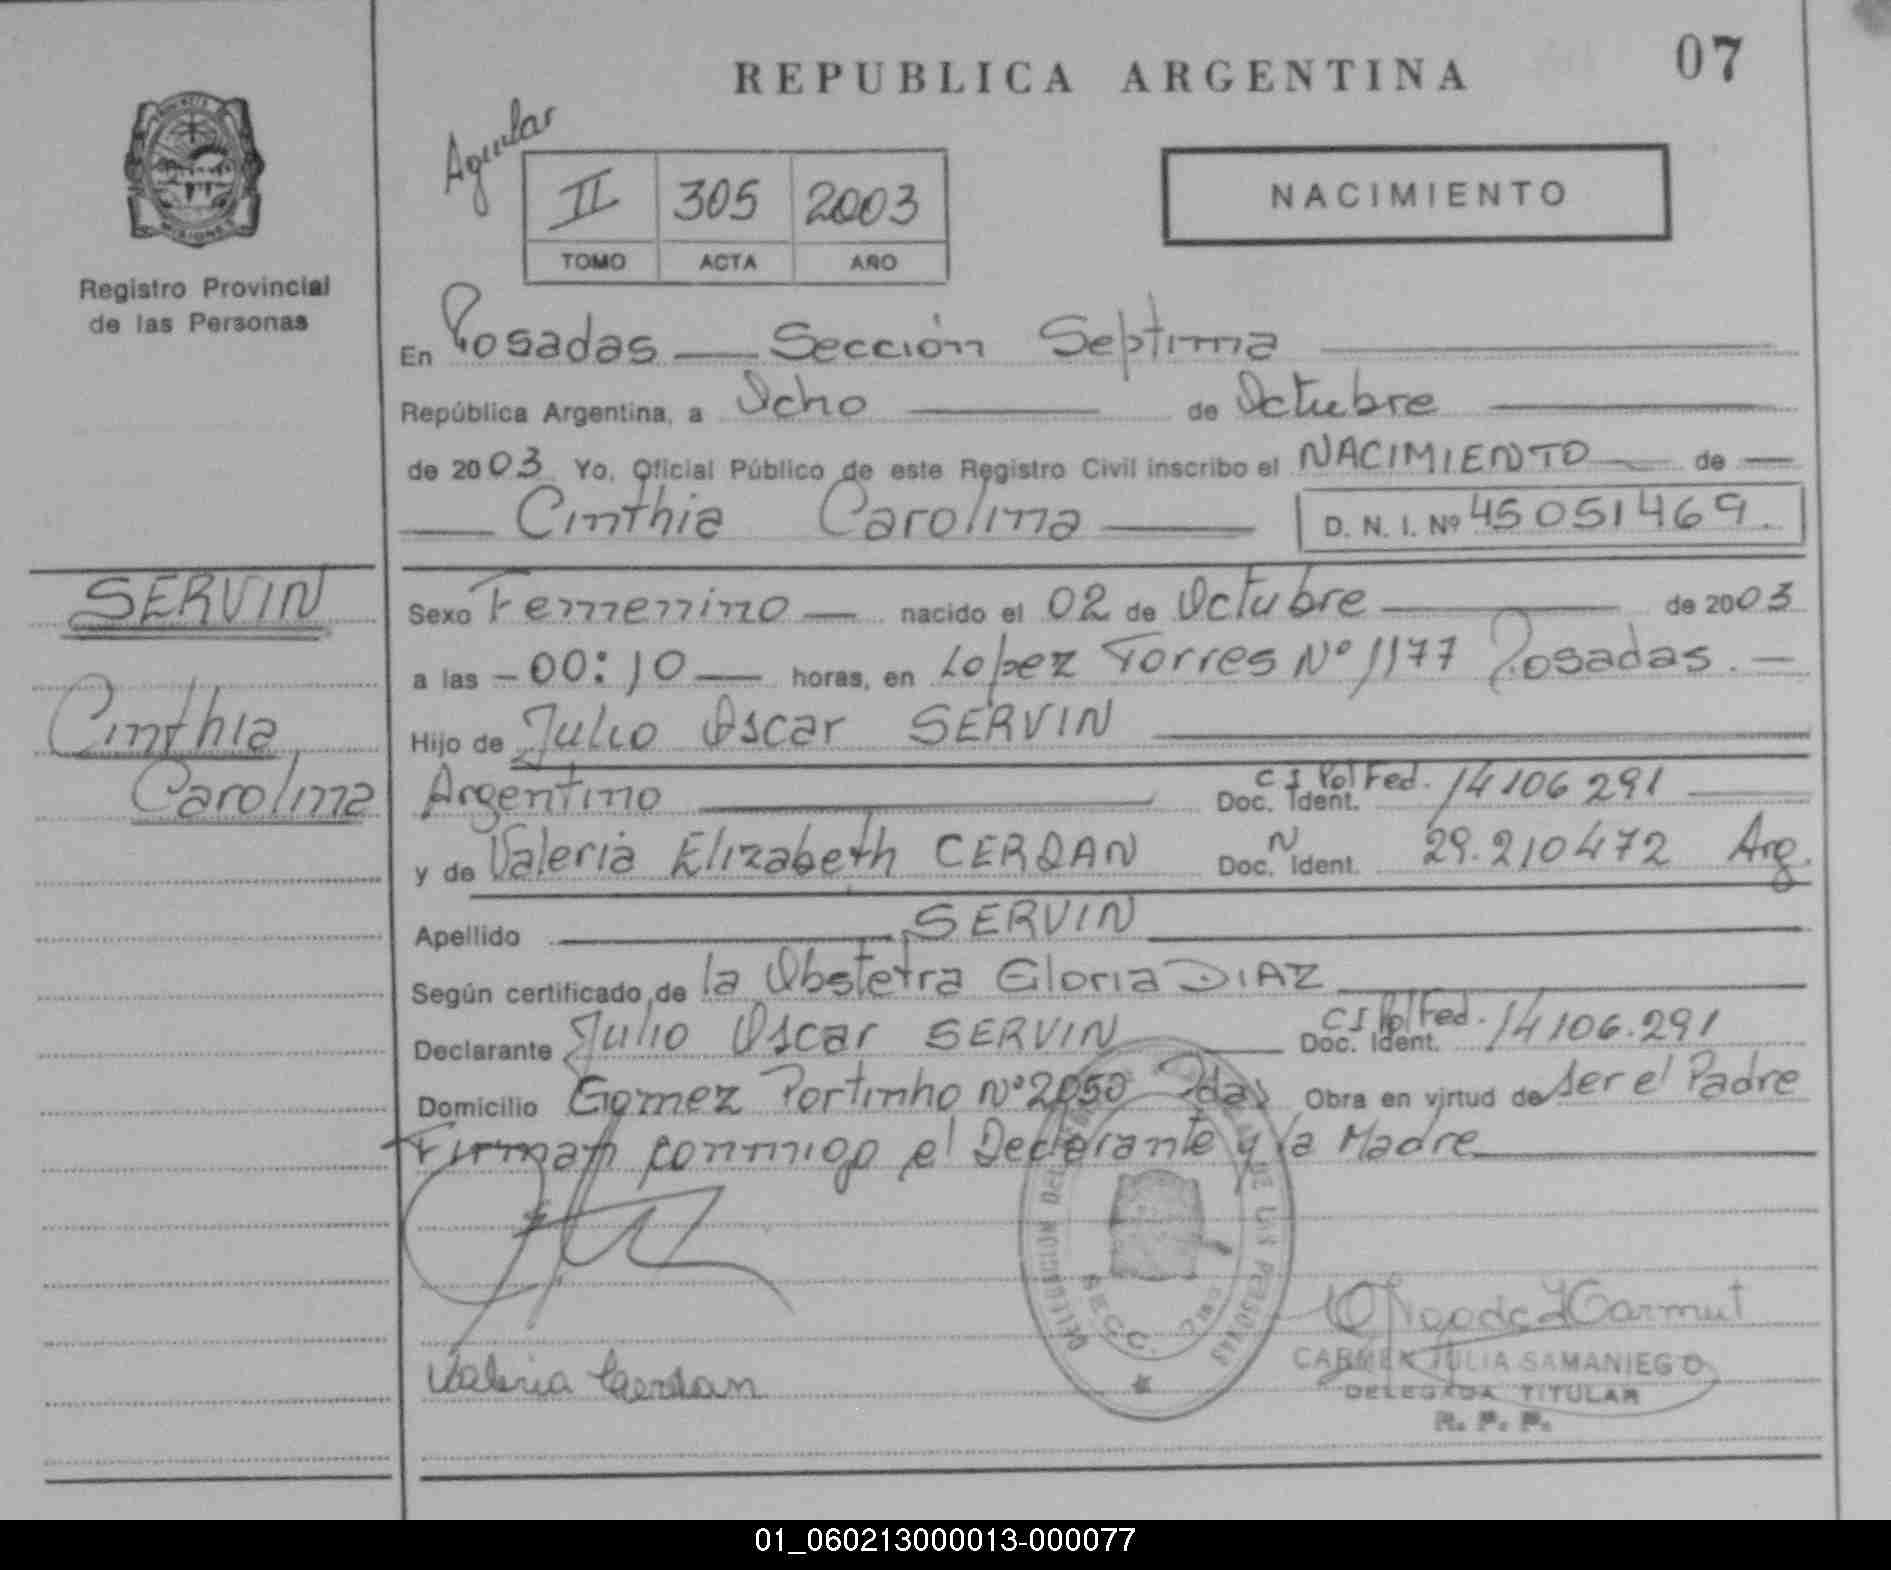 REPUBLICA ARGENTINA
07
Aguilar
II 305 2003
TOMO ACTA AÑO
NACIMIENTO
MISIONES
Registro Provincial
de las Personas
En Posadas — Sección Septima
República Argentina, a Ocho de Octubre
de 2003 Yo, Oficial Público de este Registro Civil inscribo el NACIMIENTO de
Cinthia Carolina D. N. I. Nº 45051469.
SERVIN
Cinthia
Carolina
Sexo Femenino nacido el 02 de Octubre de 2003
a las - 00:10 horas, en Lopez Torres Nº 1177 Posadas.
Hijo de Julio Oscar SERVIN
Argentino Doc. Ident. CI Pol Fed. 14106291
y de Valeria Elizabeth CERDAN Doc. N Ident. 29.210472 Arg.
Apellido SERVIN
Según certificado de la Obstetra Gloria DIAZ
Declarante Julio Oscar SERVIN Doc. Ident. CI Pol Fed. 14106.291
Domicilio Gomez Portinho Nº 2050 Pdas Obra en virtud de ser el Padre
Firman conmigo el Declarante y la Madre
DELEGACION DEL PERSONAS
SECC.
Valeria Cerdan
CARMEN JULIA SAMANIEGO
DELEGADA TITULAR
R. P. P.
01_060213000013-000077